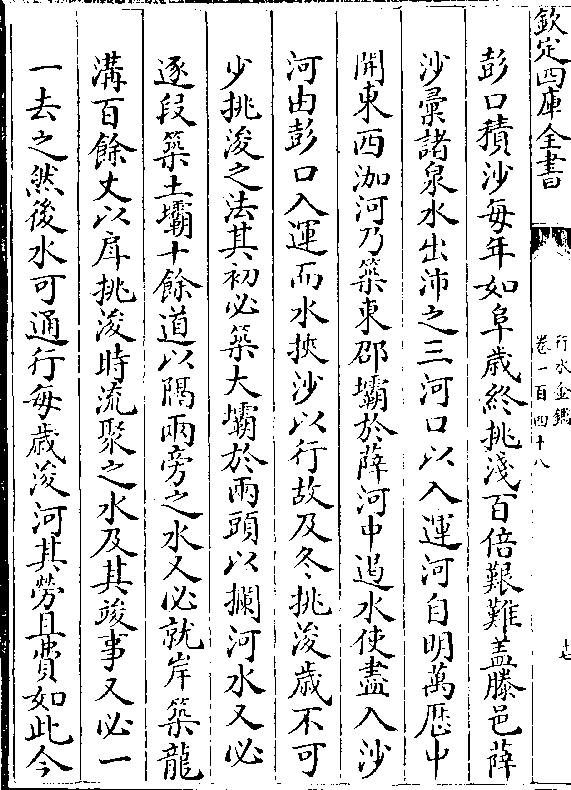 欽定四庫全書
行水金鑑
卷一百四十八
十七
彭口積沙每年如阜歲終挑淺百倍艱難蓋滕邑薛
沙彙諸泉水出沛之三河口以入運河自明萬厯中
開東西泇河乃築東邵壩於薛河中遏水使盡入沙
河由彭口入運而水挾沙以行故及冬挑浚歲不可
少挑浚之法其初必築大壩於兩頭以攔河水又必
逐段築土壩十餘道以隔兩旁之水又必就岸築龍
溝百餘丈以戽挑浚時流聚之水及其竣事又必一
一去之然後水可通行每歲浚河其勞且費如此今